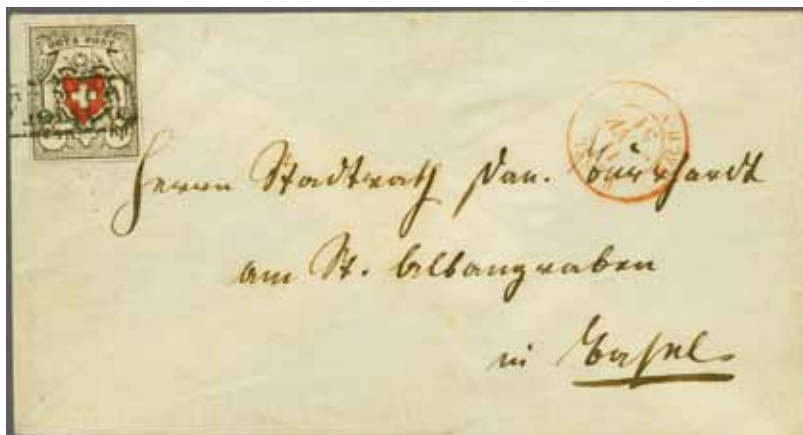 ORTS POST
Herrn Stadtrath Dan. Burkhardt
am St. Albangraben
in Basel